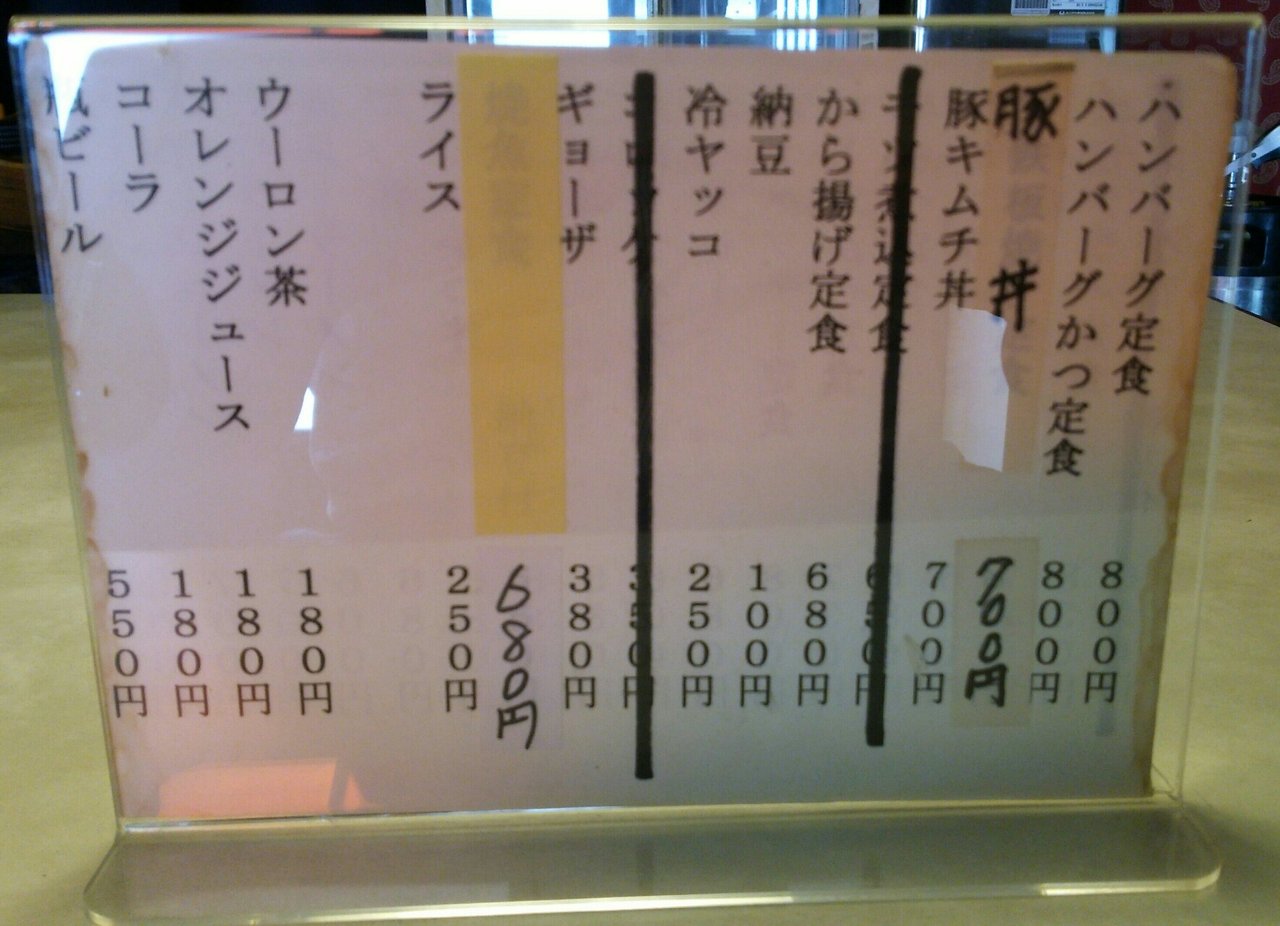 ハンバーグ定食 800円
ハンバーグかつ定食 800円
豚丼 700円
豚キムチ丼 700円
モツ煮込定食 650円
から揚げ定食 680円
納豆 100円
冷ヤッコ 250円
コロッケ 350円
ギョーザ 380円
680円
ライス 250円
ウーロン茶 180円
オレンジジュース 180円
コーラ 180円
瓶ビール 550円